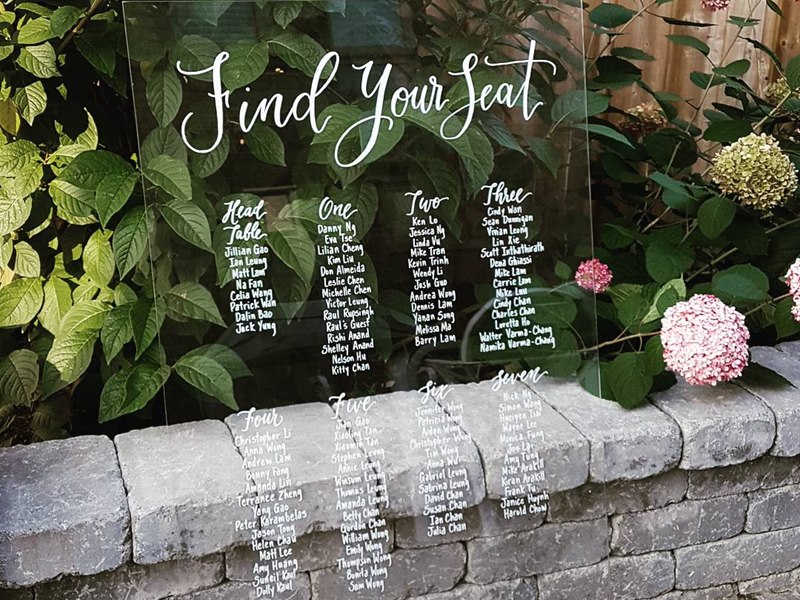 Find Your Seat
Head
Table
Jillian Gao
Ian Leung
Matt Lam
Na Fan
Celia Wang
Patrick Wan
Dalin Bao
Jack Yung
One
Danny Ng
Eva Tse
Lilian Cheng
Kim Liu
Don Almeida
Leslie Chen
Michelle Chen
Victor Leung
Raul Rupsingh
Raul's Guest
Rishi Anand
Shelley Anand
Nelson Hu
Kitty Chan
Two
Ken Lo
Jessica Ng
Linda Vu
Mike Tran
Kevin Trinh
Wendy Li
Josh Guo
Andrea Wong
Dennis Lam
Yanan Song
Melissa Ma
Barry Lam
Three
Cindy Wan
Sean Dunnigan
Vivian Leung
Lin Xie
Scott Inthathirath
Dena Ghiassi
Mike Lam
Carrie Lam
Mike Lui
Cindy Chan
Charles Chan
Loretta Ho
Walter Varma-Chang
Namika Varma-Chang
Four
Christopher Li
Anna Wong
Andrew Lam
Danny Fang
Amanda Lin
Terrance Zheng
Yang Gao
Peter Karambelas
Jason Tong
Helen Chau
Matt Lee
Amy Huang
Suneil Kaul
Dolly Kaul
Five
Gao
Xiaoling Tan
Tan
Stephen Leung
Annie Leung
Winsum Leung
Thomas Leung
Amanda Leung
Betty Chan
Gordon Chan
William Wong
Emily Wong
Thompson Wong
Bonita Wong
Som Wong
Six
Jennifer Wong
Patricia Wong
Wong
Christopher Wong
Tim Wong
Anna Wu
Gabriel Leung
Sabrina Leung
David Chan
Susan Chan
Ian Chan
Julia Chan
Seven
Nick Ng
Simon Wan
Tsui
Wayne Lee
Monica Fung
Joe Lee
Amy Tung
Mike Arakill
Kiran Arakill
Frank Tu
Janice Huynh
Harold Chow